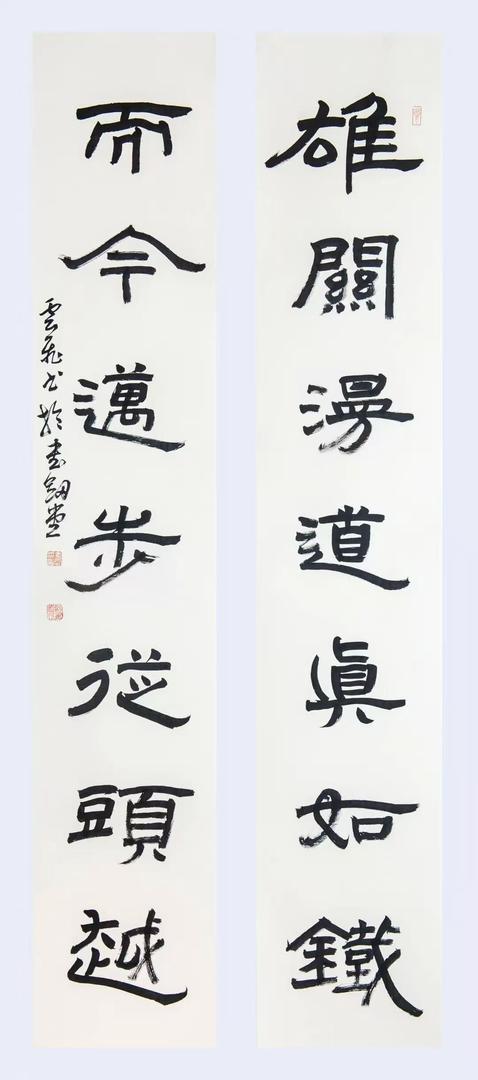 雄關漫道真如鐵
而今邁步從頭越
雲飛書於書劍堂